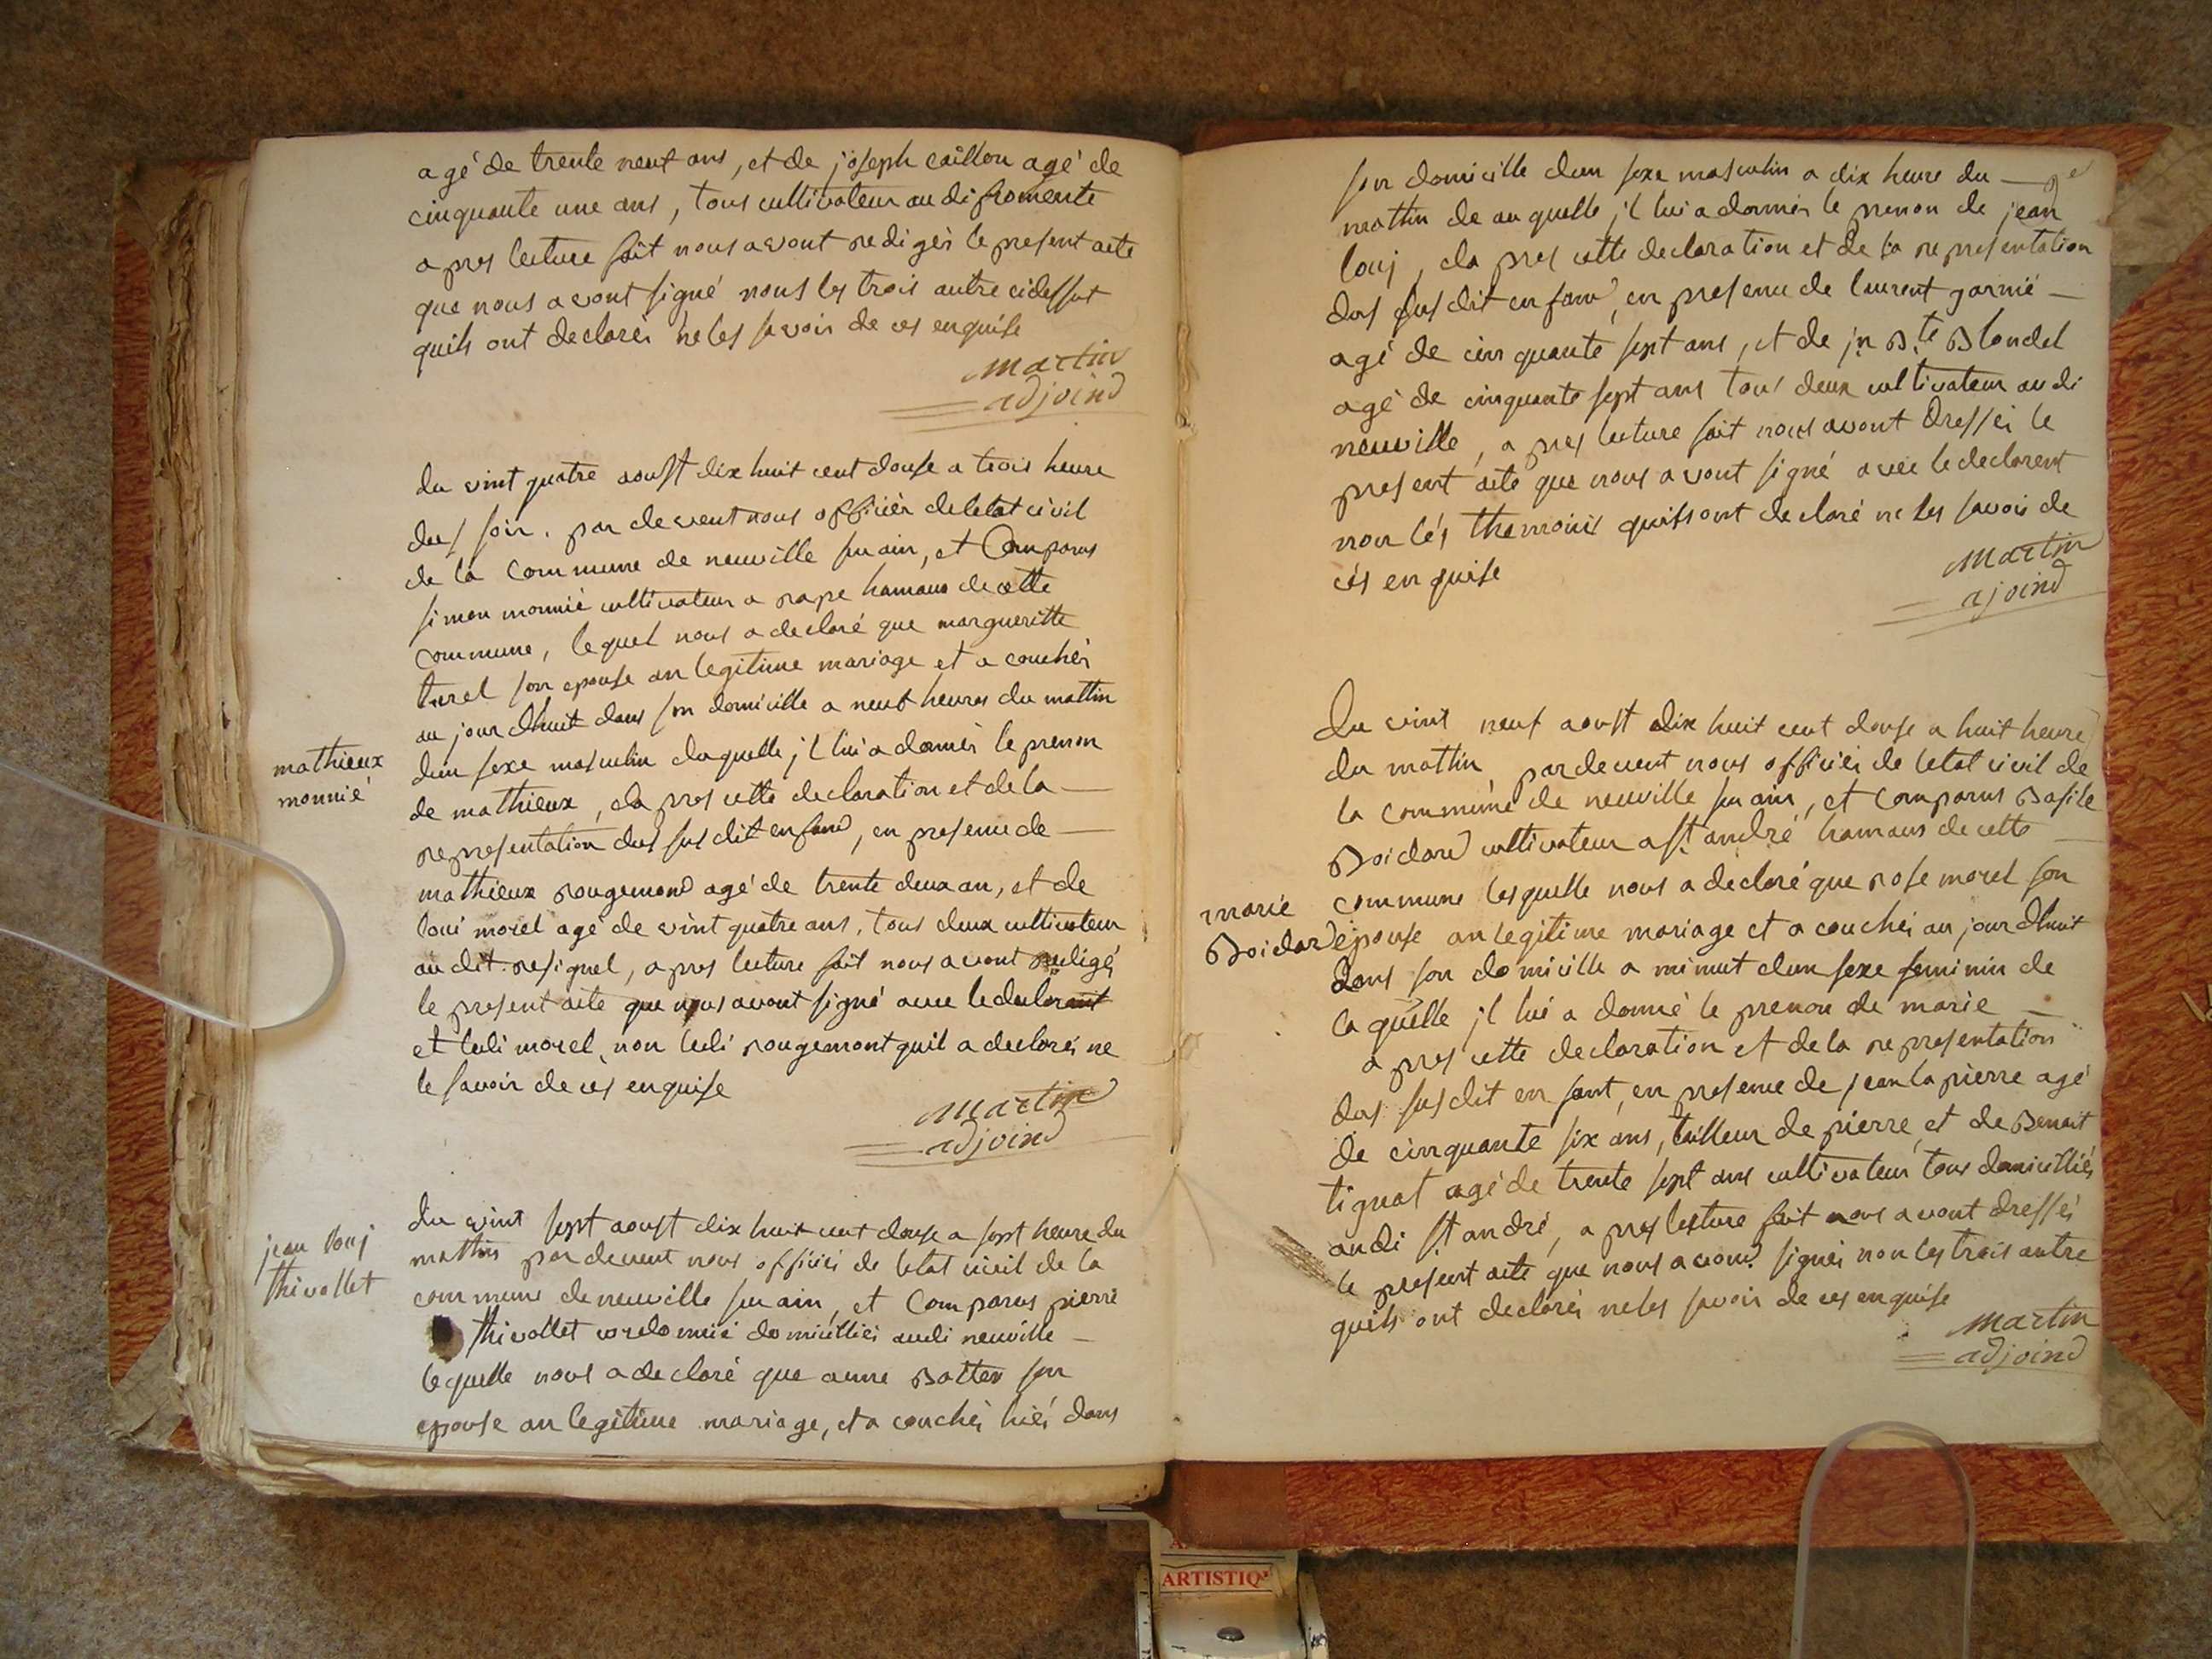 agé de trente neuf ans, et de joseph caillon agé de
cinquante une ans, tous cultivateur au di fromente
apres lecture fait nous avont redigés le present acte
que nous avont signé nous les trois autre cidessut
quils ont declarés ne les savoir de ces enquise
martin
adjoind
du vint quatre aoust dix huit cent douse a trois heure
dus soir. par devent nous officier de letat civil
de la commune de neuville sur ain, et Comparus
simon monnié cultivateur a rape hamaus de cette
commune, lequel nous a declaré que margueritte
turel son epouse an legitime mariage et a couchés
au jour dhuit dans son domicille a neuf heures du mattin
dun sexe masculin daquelle jl lui a donnés le prenon
de mathieux, da pres cette declaration et de la
representation dus sus dit enfand, en presence de
mathieux
monnié
mathieux rougemond agé de trente deux an, et de
loui morel agé de vint quatre ans, tous deux cultivateur
au dit resignel, apres lecture fait nous avont redigé
le present acte que nous avont signé avec le declarant
et ledi morel, non ledi rougemont quil a declarés ne
le savoir de ces enquise
martin
adjoind
jean louj
thivollet
du vint sept aoust dix huit cent douse a sept heure du
mattin par devent nous officiés de letat civil de la
commune de neuville sur ain, et Comparus pierre
thivollet cordonnié domicilliés audi neuville
lequelle nous a declaré que anne Batter son
epouse an legitime mariage, et a couchés hiés dans
son domicille dun sexe masculin a dix heure du
mattin de au quelle jl lui a donnés le prenon de jean
louj, da pres cette declaration et de la representation
dus sus dit enfand, en presence de laurent garnié
agé de cinquante sept ans, et de jn Bte Blondel
agé de cinquante sept ans tous deux cultivateur au di
neuville, apres lecture fait nous avont dressés le
present acte que nous avont signé avec le declarent
non lés themoins quils ont declaré ne les savoir de
cés enquise
martin
ajoind
Du vint neuf aoust dix huit cent douse a huit heure
du mattin, par devent nous officiés de letat civil de
la commune de neuville sur ain, et comparus Basile
Boidard cultivateur a st andré hamaus de cette
commune lesquelle nous a declaré que rose morel son
marie
Boidard
épouse an legitime mariage et a couchés au jour dhuit
dans son domicille a minuit dun sexe feminin de
laquelle jl lui a donné le prenon de marie
apres cette declaration et de la representation
dus susdit enfant, en presence de jean lapierre agé
de cinquante six ans, tailleur de pierre, et de Benoit
tignat agé de trente sept ans cultivateur tous domicilliés
audi st andré, apres lecture fait nous avont dressés
le present acte que nous avond signés non les trois autre
quils ont declarés ne les savoir de ces enquise
martin
adjoind
ARTISTIQ